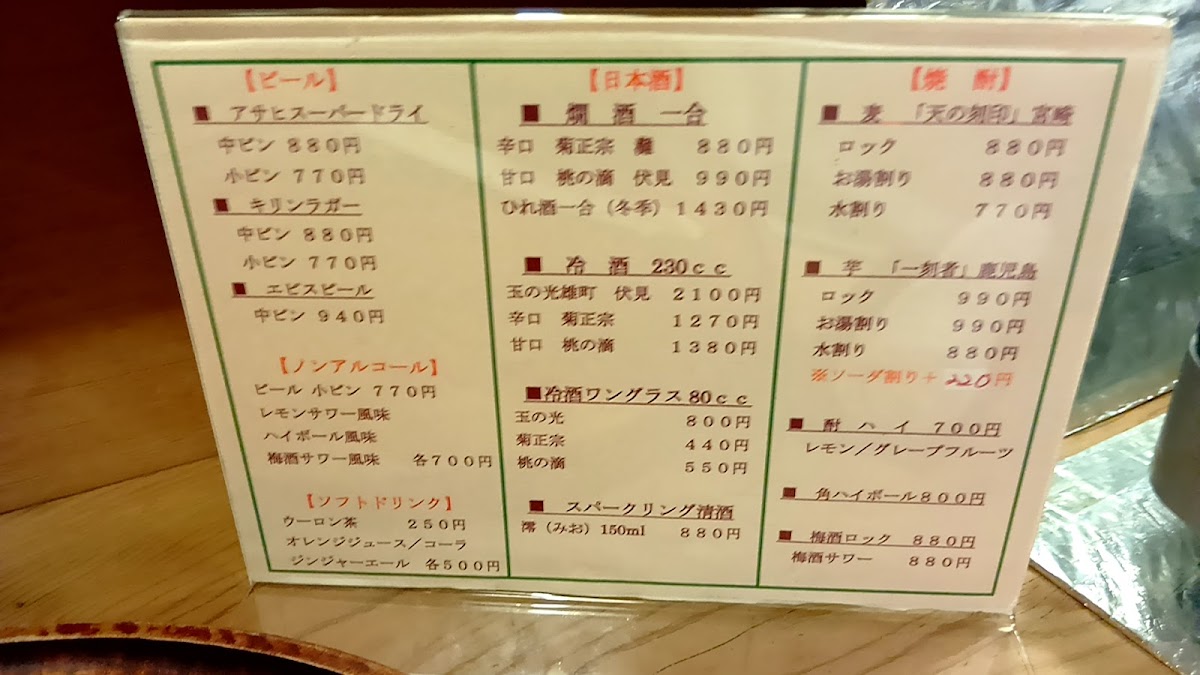 【ビール】
■ アサヒスーパードライ
中ビン 880円
小ビン 770円
■ キリンラガー
中ビン 880円
小ビン 770円
■ エビスビール
中ビン 940円
【ノンアルコール】
ビール 小ビン 770円
レモンサワー風味
ハイボール風味
梅酒サワー風味 各700円
【ソフトドリンク】
ウーロン茶 250円
オレンジジュース/コーラ
ジンジャーエール 各500円
【日本酒】
■ 燗 酒 一合
辛口 菊正宗 灘 880円
甘口 桃の滴 伏見 990円
ひれ酒一合(冬季)1430円
■ 冷 酒 230cc
玉の光雄町 伏見 2100円
辛口 菊正宗 1270円
甘口 桃の滴 1380円
■冷酒ワングラス 80cc
玉の光 800円
菊正宗 440円
桃の滴 550円
■ スパークリング清酒
澪(みお)150ml 880円
【焼 酎】
■ 麦 「天の刻印」宮崎
ロック 880円
お湯割り 880円
水割り 770円
■ 芋 「一刻者」鹿児島
ロック 990円
お湯割り 990円
水割り 880円
※ソーダ割り+220円
■ 酎 ハ イ 700円
レモン/グレープフルーツ
■ 角ハイボール800円
■ 梅酒ロック 880円
梅酒サワー 880円